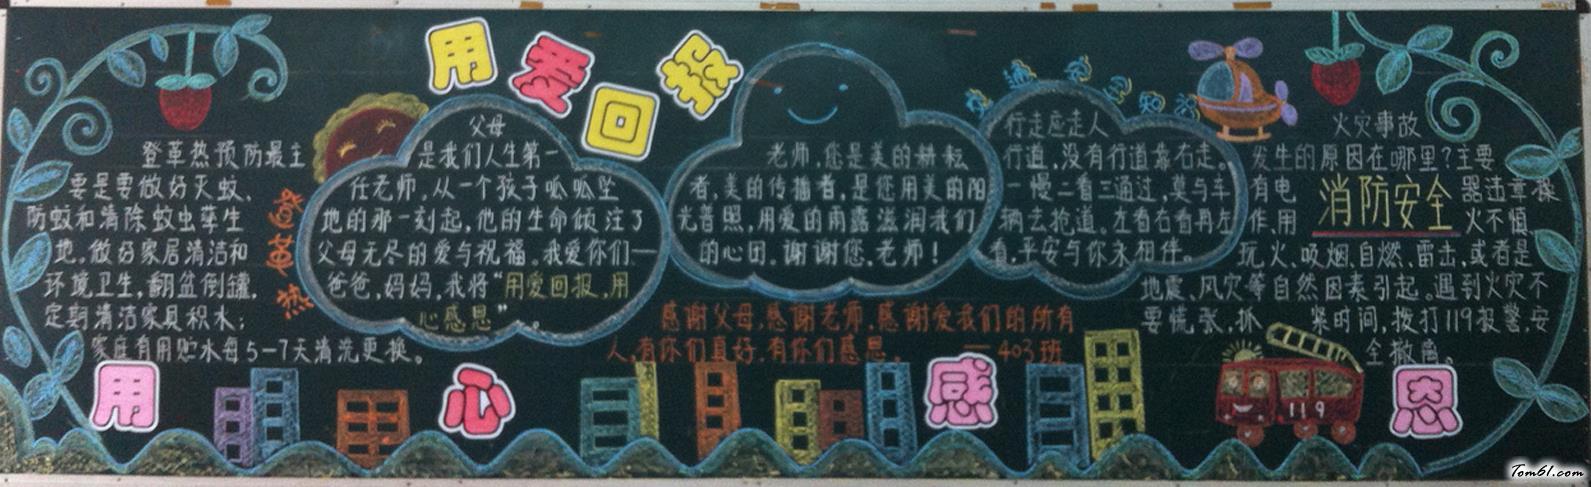 用爱回报
登革热预防最主
要是要做好灭蚊,
防蚊和清除蚊虫孳生
地,做好家居清洁和
环境卫生,翻盆倒罐,
定期清洁家具积水;
家庭有用贮水每5-7天清洗更换。
登革热
父母
是我们人生第一
任老师,从一个孩子呱呱坠
地的那一刻起,他的生命倾注了
父母无尽的爱与祝福。我爱你们—
爸爸,妈妈,我将“用爱回报,用
心感恩”。
老师,您是美的耕耘
者,美的传播者,是您用美的阳
光普照,用爱的雨露滋润我们
的心田。谢谢您,老师!
交通安全知识
行走应走人
行道,没有行道靠右走。
一慢二看三通过,莫与车
辆去抢道。左看右看再左
看,平安与你永相伴。
火灾事故
发生的原因在哪里?主要
有电器违章操
作、用火不慎、
玩火、吸烟、自燃、雷击,或者是
地震、风灾等自然因素引起。遇到火灾不
要慌张,抓紧时间,拨打119报警,安
全撤离。
消防安全
感谢父母,感谢老师,感谢爱我们的所有
人,有你们真好,有你们感恩。 —403班
119
用心感恩
Tom61.com